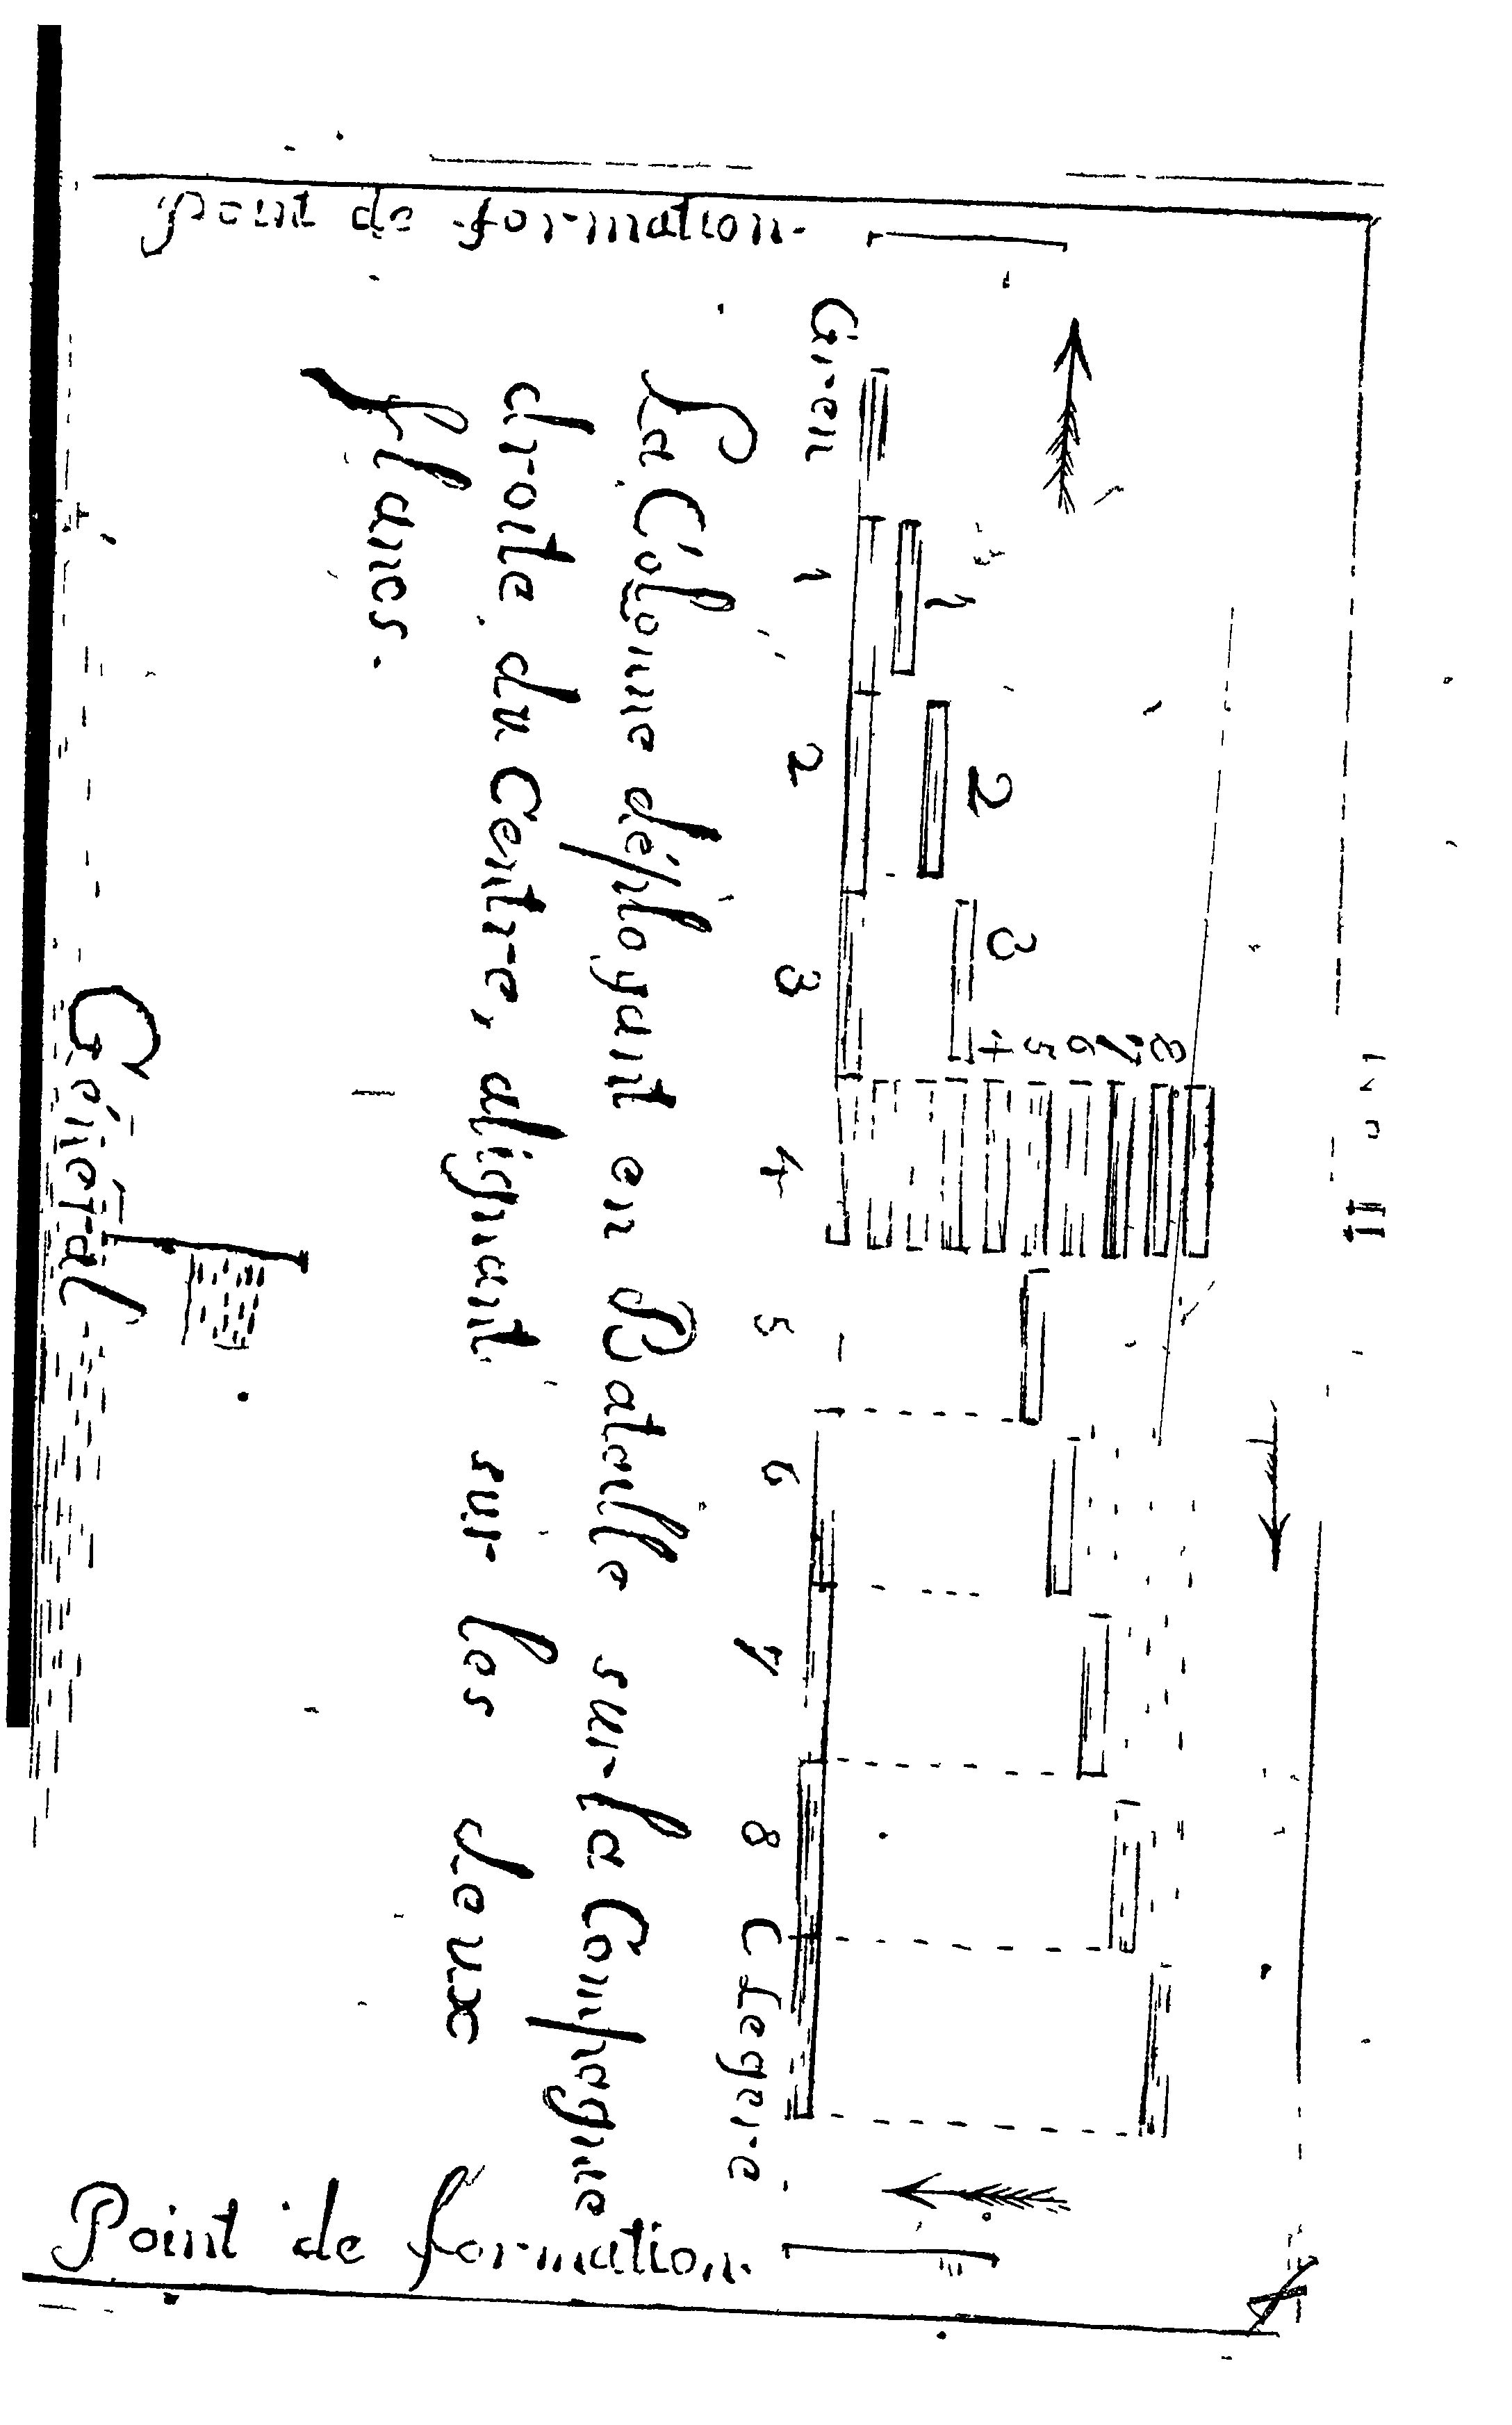 Point de formation.
point de formation.
8
7
6
5
4
3
2
1
Gren 1 2 3 4 5 6 7 8 C Legere
La Colonne déployant en Bataille sur la Compagnie
droite du Centre, alignant sur les deux
flancs.
Général